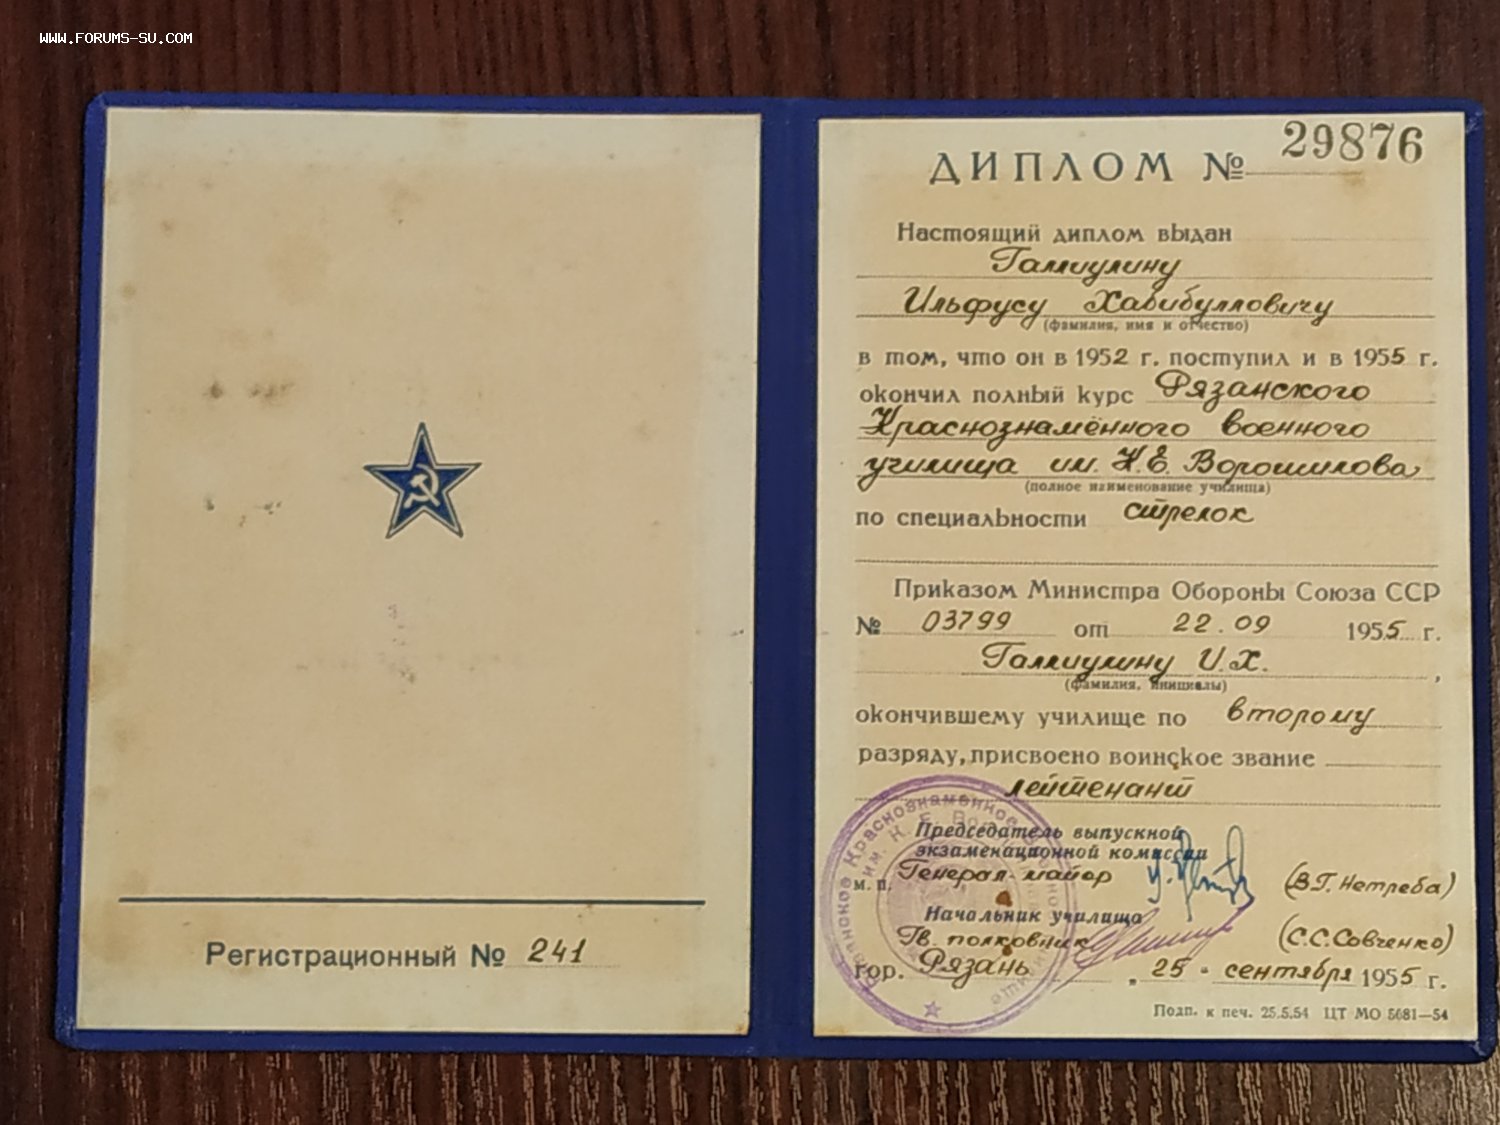 WWW.FORUMS-SU.COM
Регистрационный № 241
ДИПЛОМ № 29876
Настоящий диплом выдан
Галиулину
Ильфусу Хабибулловичу
(фамилия, имя и отчество)
в том, что он в 1952 г. поступил и в 1955 г.
окончил полный курс Рязанского
Краснознамённого военного
училища им. К.Е. Ворошилова
(полное наименование училища)
по специальности стрелок
Приказом Министра Обороны Союза ССР
№ 03799 от 22.09 1955 г.
Галиулину И.Х.,
(фамилия, инициалы)
окончившему училище по второму
разряду, присвоено воинское звание
лейтенант
Председатель выпускной
экзаменационной комиссии
м. п. Генерал-майор (В.Г. Нетреба)
Начальник училища
Гв. полковник (С.С. Савченко)
гор. Рязань „ 25 " сентября 1955 г.
Подп. к печ. 25.5.54 ЦТ МО 5681—54